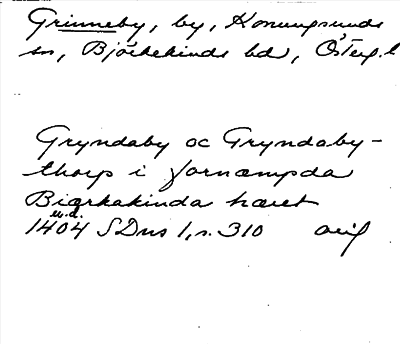 Grinneby, by, Konungsunds
sn, Björkekinds hd, Österg. l
Gryndaby oc Gryndaby-
thorp i fornæmpda
Biærkakinda hæret
u.d.
1404 SDns 1, s. 310 avif